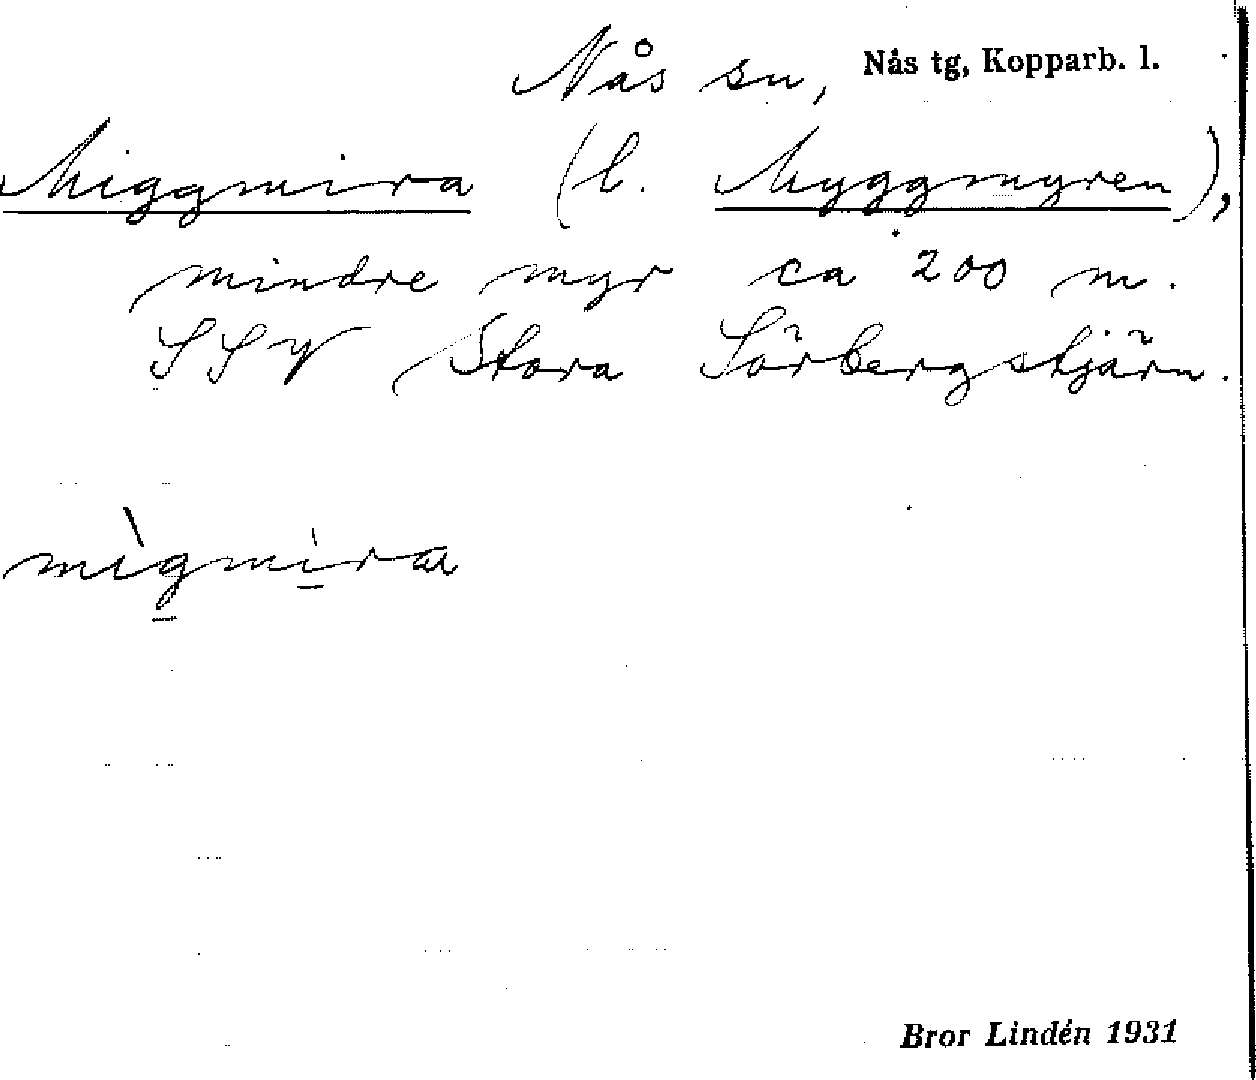 Nås sn, Nås tg, Kopparb. l.
Miggmira (l. Myggmyren),
mindre myr ca 200 m.
SSV Stora Sörbergstjärn.
mìgmìra
Bror Lindén 1931